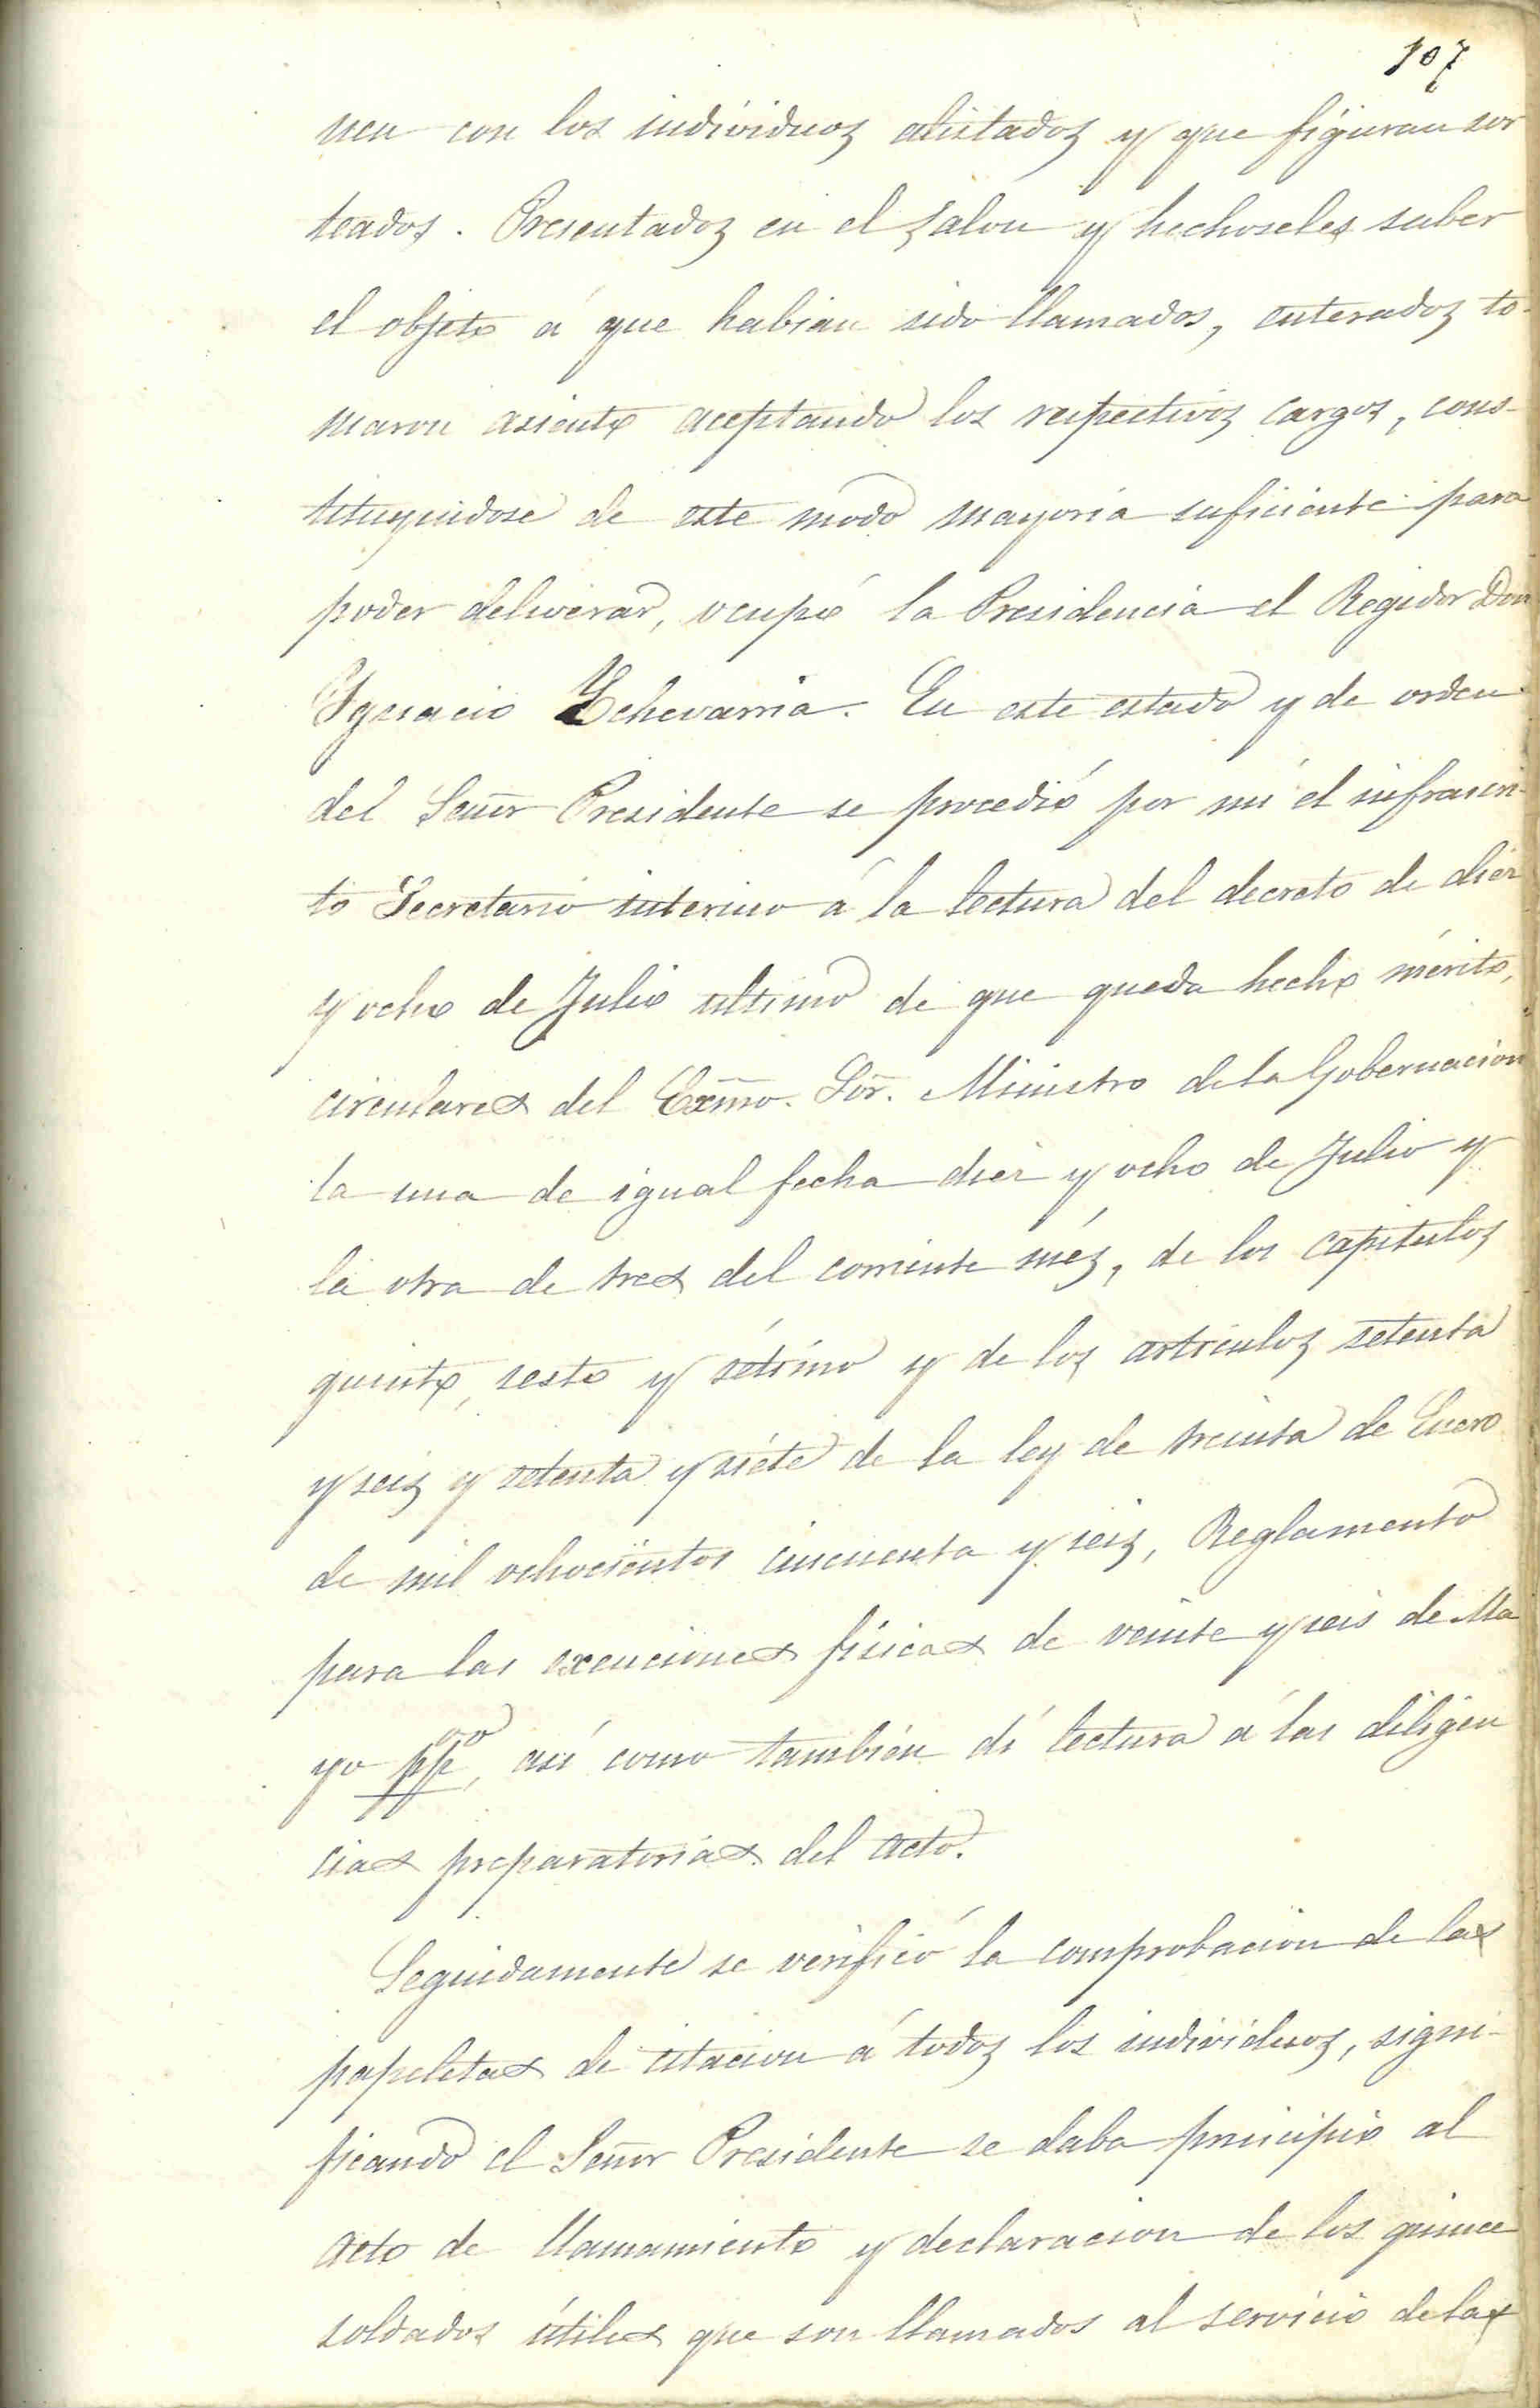 107
nen con los individuoz alistadoz y que figuran sor
teados. Presentadoz en el salon y hechoseles saber
el objeto á que habian sido llamados, enteradoz to-
maron asiento aceptando los respectivoz cargos, cons-
tituyendose de este modo mayoría suficiente para
poder deliverar, ocupó la Presidencia el Regidor Don
Ygnacio Echevarria. En este estado y de orden
del Señor Presidente se procedió por mi el infrascri-
to Secretario interino á la lectura del decreto de diez
y ocho de Julio ultimo de que queda hecho mérito,
circulares del Exmo. Sor. Ministro de la Gobernacion
la una de igual fecha diez y ocho de Julio y
la otra de tres del corriente méz, de los capituloz
quinto, sesto y sétimo y de loz articuloz setenta
y seiz y setenta y siete de la ley de treinta de Enero
de mil ochocientos cincuenta y seiz, Reglamento
para las exenciones fisicas de veinte y seis de Ma
yo ppº, así como también dí lectura á las diligen
cias preparatorias del acto.
Seguidamente se verificó la comprobacion de las
papeletas de citacion á todoz los individuoz, signi-
ficando el Señor Presidente se daba principio al
acto de llamamiento y declaracion de los quince
soldados útiles que son llamados al servicio de las